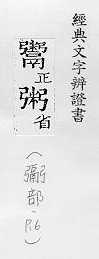 經典文字辨證書
鬻正粥省
(䰜部, P.6)